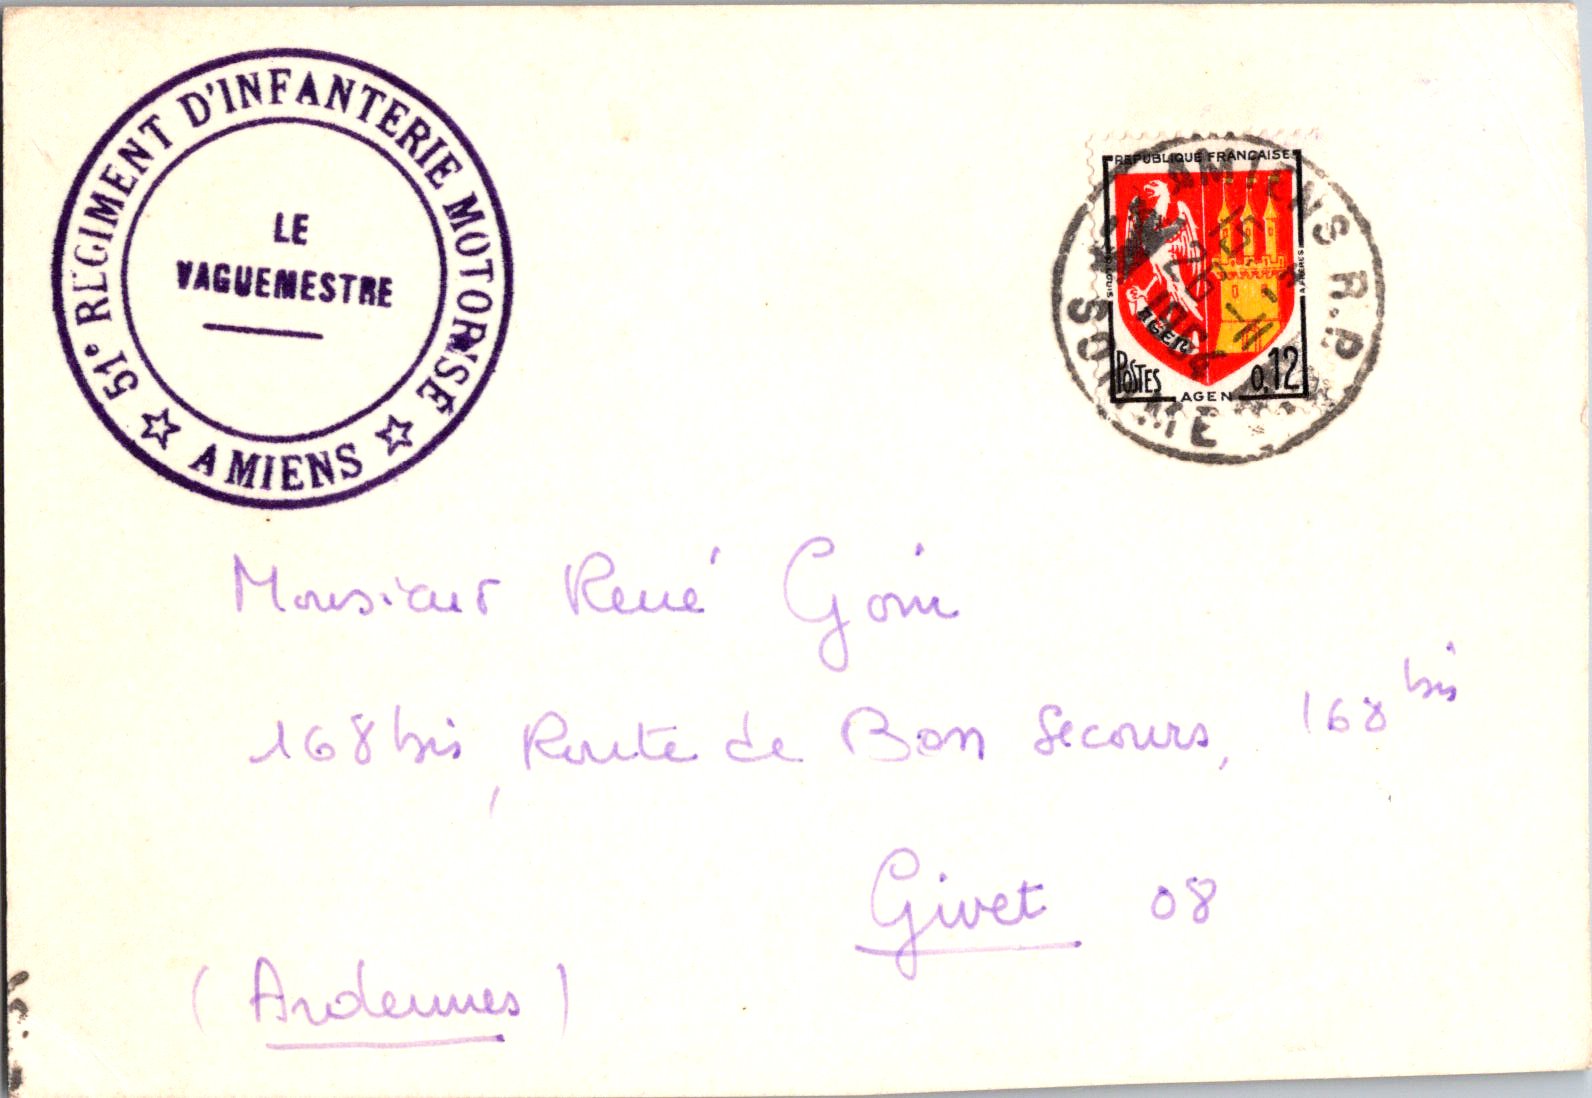 51e REGIMENT D'INFANTERIE MOTORISÉ
AMIENS
LE
VAGUEMESTRE
REPUBLIQUE FRANÇAISE
AGEN
POSTES
0,12
AGEN
AMIENS R.P.
1964
SOMME
Monsieur René Goni
168 bis, Route de Bon Secours, 168 bis
Givet 08
(Ardennes)